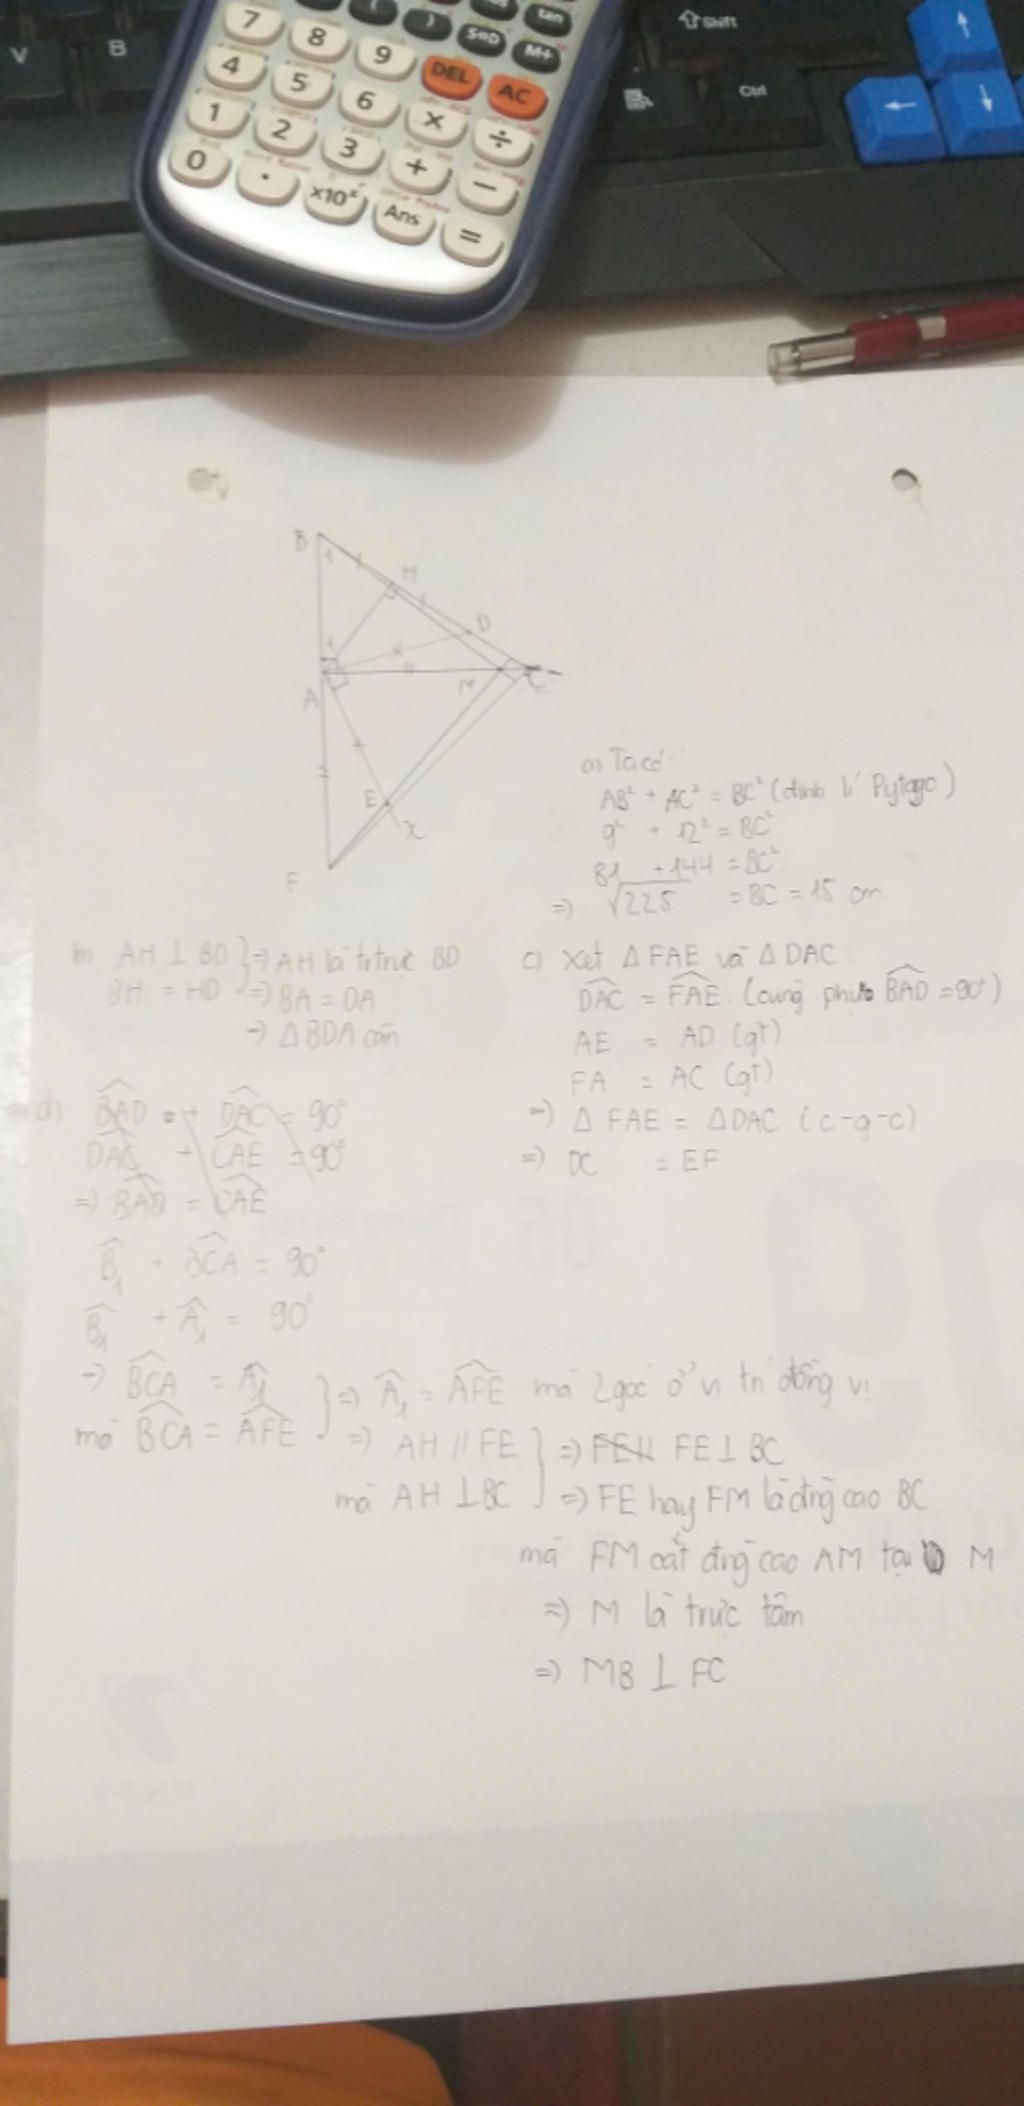 V B Shift
Ctrl
7 8 9 DEL AC
4 5 6 × ÷
1 2 3 + −
0 . ×10ˣ Ans =
tan
S⇔D M+
B 1 H D
1
A M C
E x
F
a) Ta có:
AB² + AC² = BC² (định lí Pytago)
9² + 12² = BC²
81 +144 = BC²
=> √225 = BC = 15 cm
b) AH ⊥ BD } => AH là tr trực BD
BH = HD => BA = DA
=> Δ BDA cân
c) Xét Δ FAE và Δ DAC
DAC^ = FAE^ (cùng phụ BAD^ = 90°)
AE = AD (gt)
FA = AC (gt)
=> Δ FAE = Δ DAC (c-g-c)
=> DC = EF
d) BAD^ + DAC^ = 90°
DAC^ + CAE^ = 90°
=> BAD^ = CAE^
B₁^ + BCA^ = 90°
B₁^ + A₁^ = 90°
=> BCA^ = A₁^ } => A₁^ = AFE^ mà 2 góc ở vị trí đồng vị
mà BCA^ = AFE^ => AH // FE } => FE ⊥ BC
mà AH ⊥ BC => FE hay FM là đng cao BC
mà FM cắt đng cao AM tại M
=> M là trực tâm
=> MB ⊥ FC
05
09
VNPT